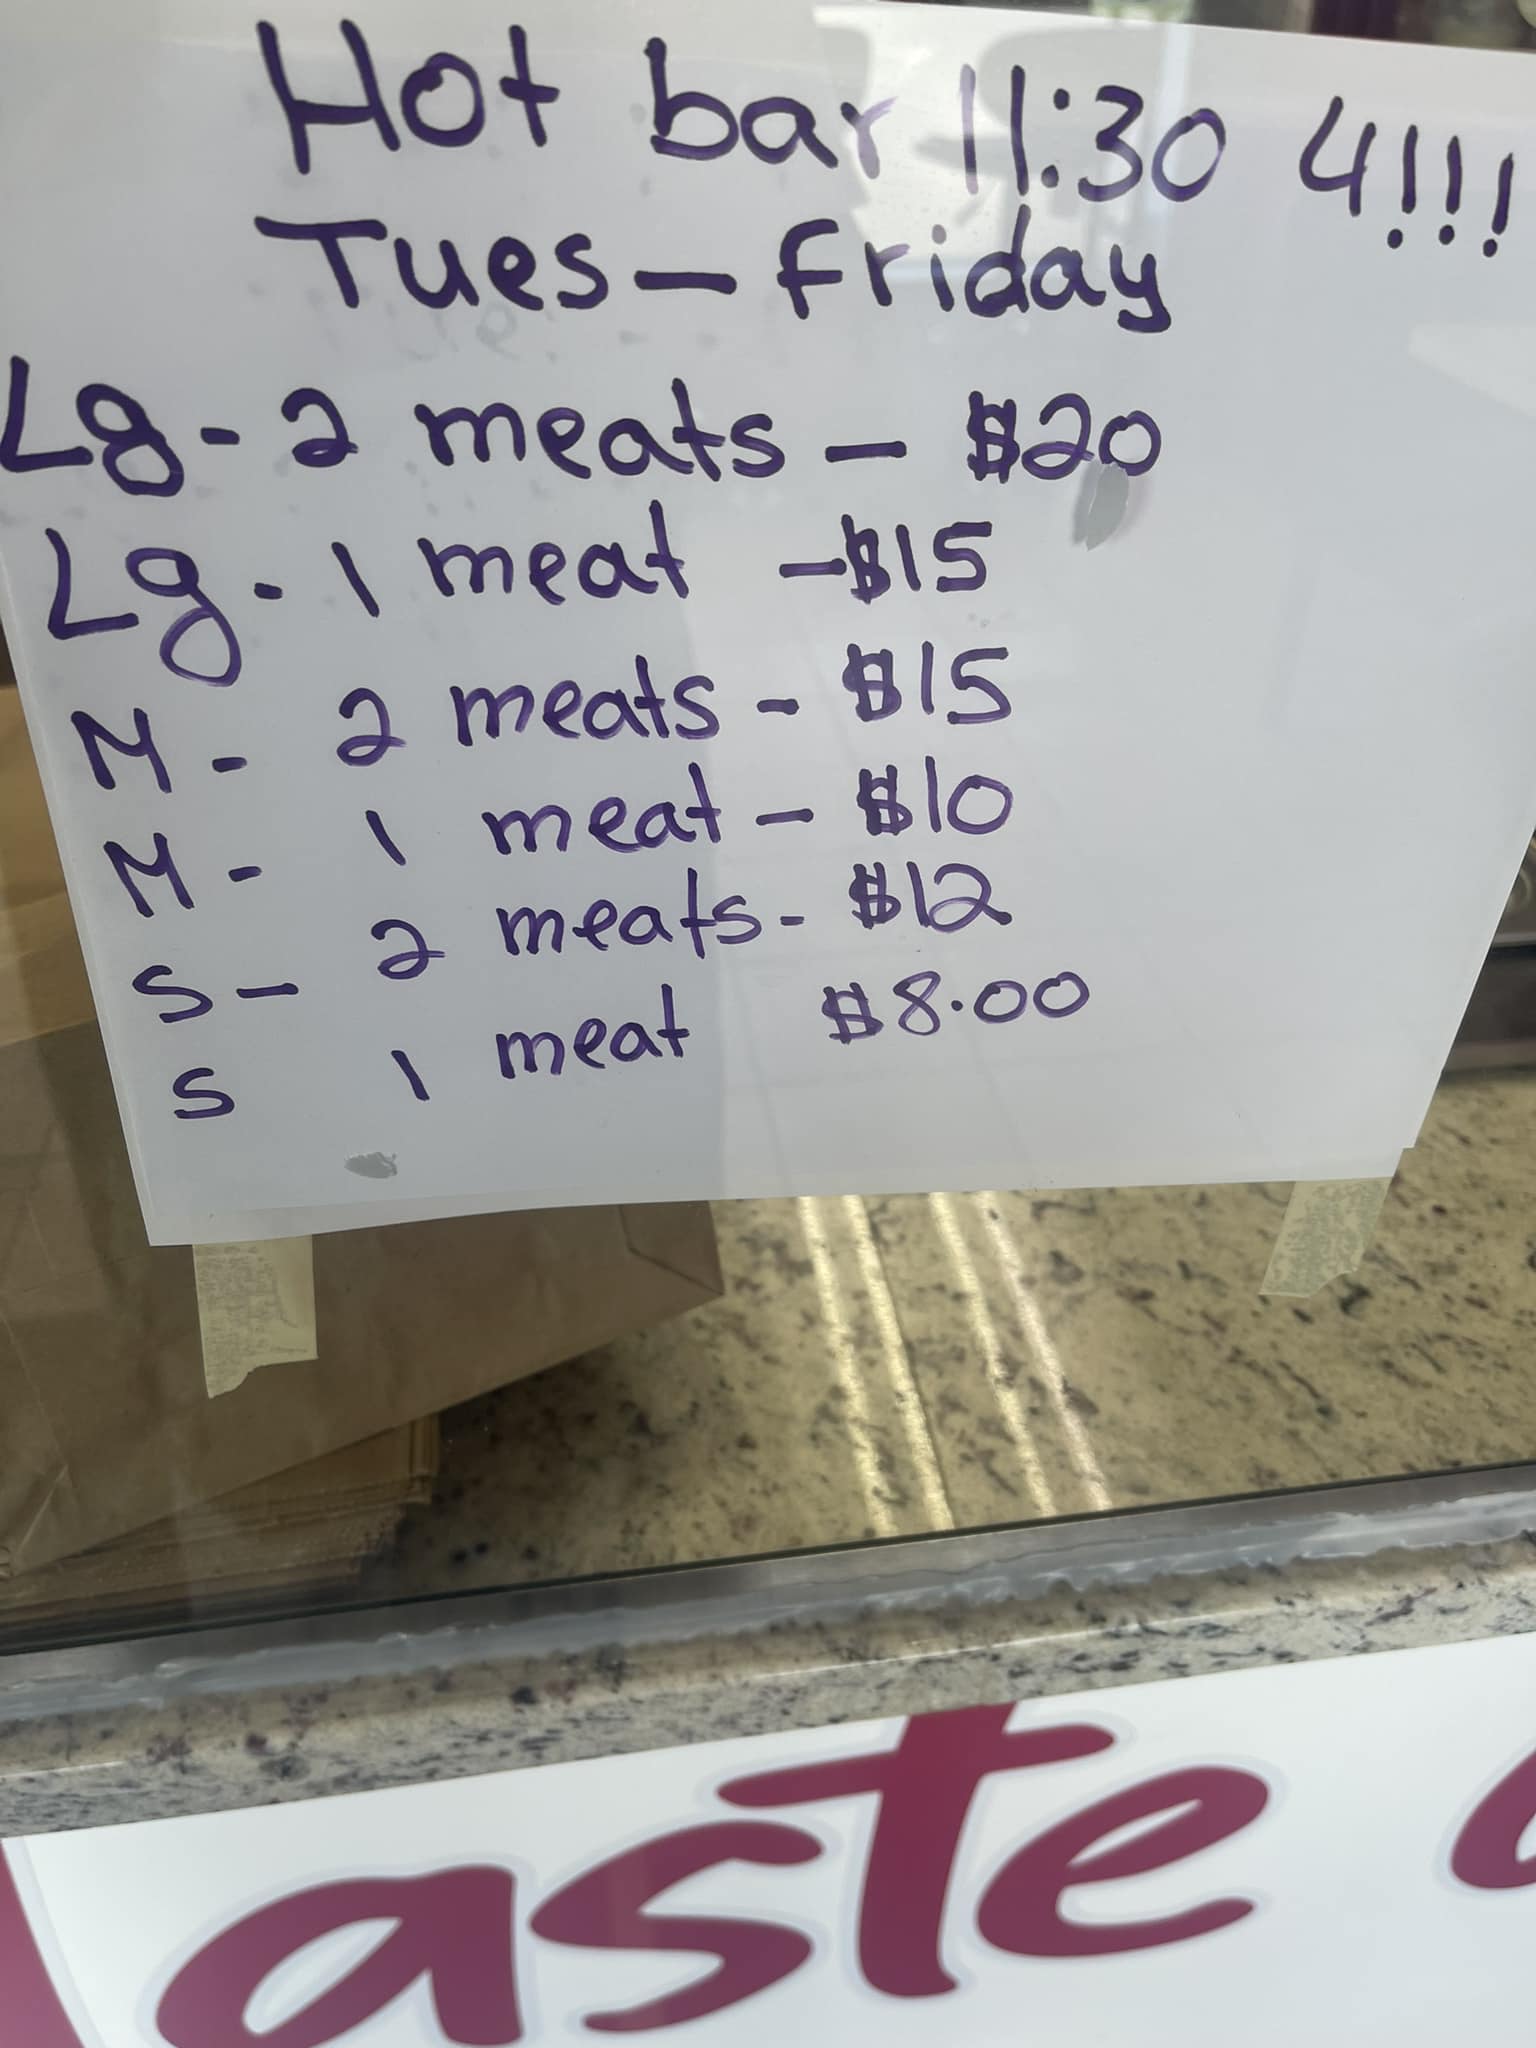 Hot bar 11:30 4!!!
Tues - friday
Lg - 2 meats - $20
Lg - 1 meat - $15
M - 2 meats - $15
M - 1 meat - $10
S - 2 meats - $12
S 1 meat $8.00
aste